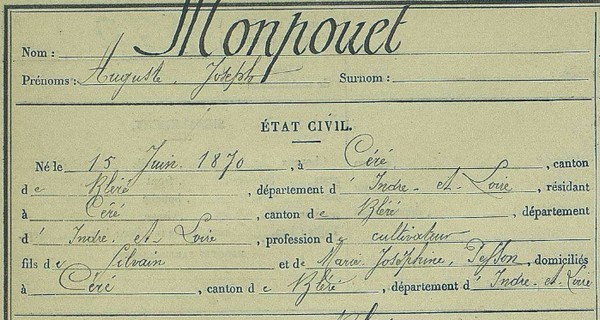 Nom : Monpouet
Prénoms : Auguste Joseph Surnom :
ÉTAT CIVIL.
Né le 15 Juin 1870, à Céré, canton
de Bléré, département d' Indre-et-Loire, résidant
à Céré, canton de Bléré, département
d' Indre-et-Loire, profession de cultivateur
fils de Silvain et de Marie Joséphine, Tesson, domiciliés
à Céré, canton de Bléré, département d' Indre-et-Loire